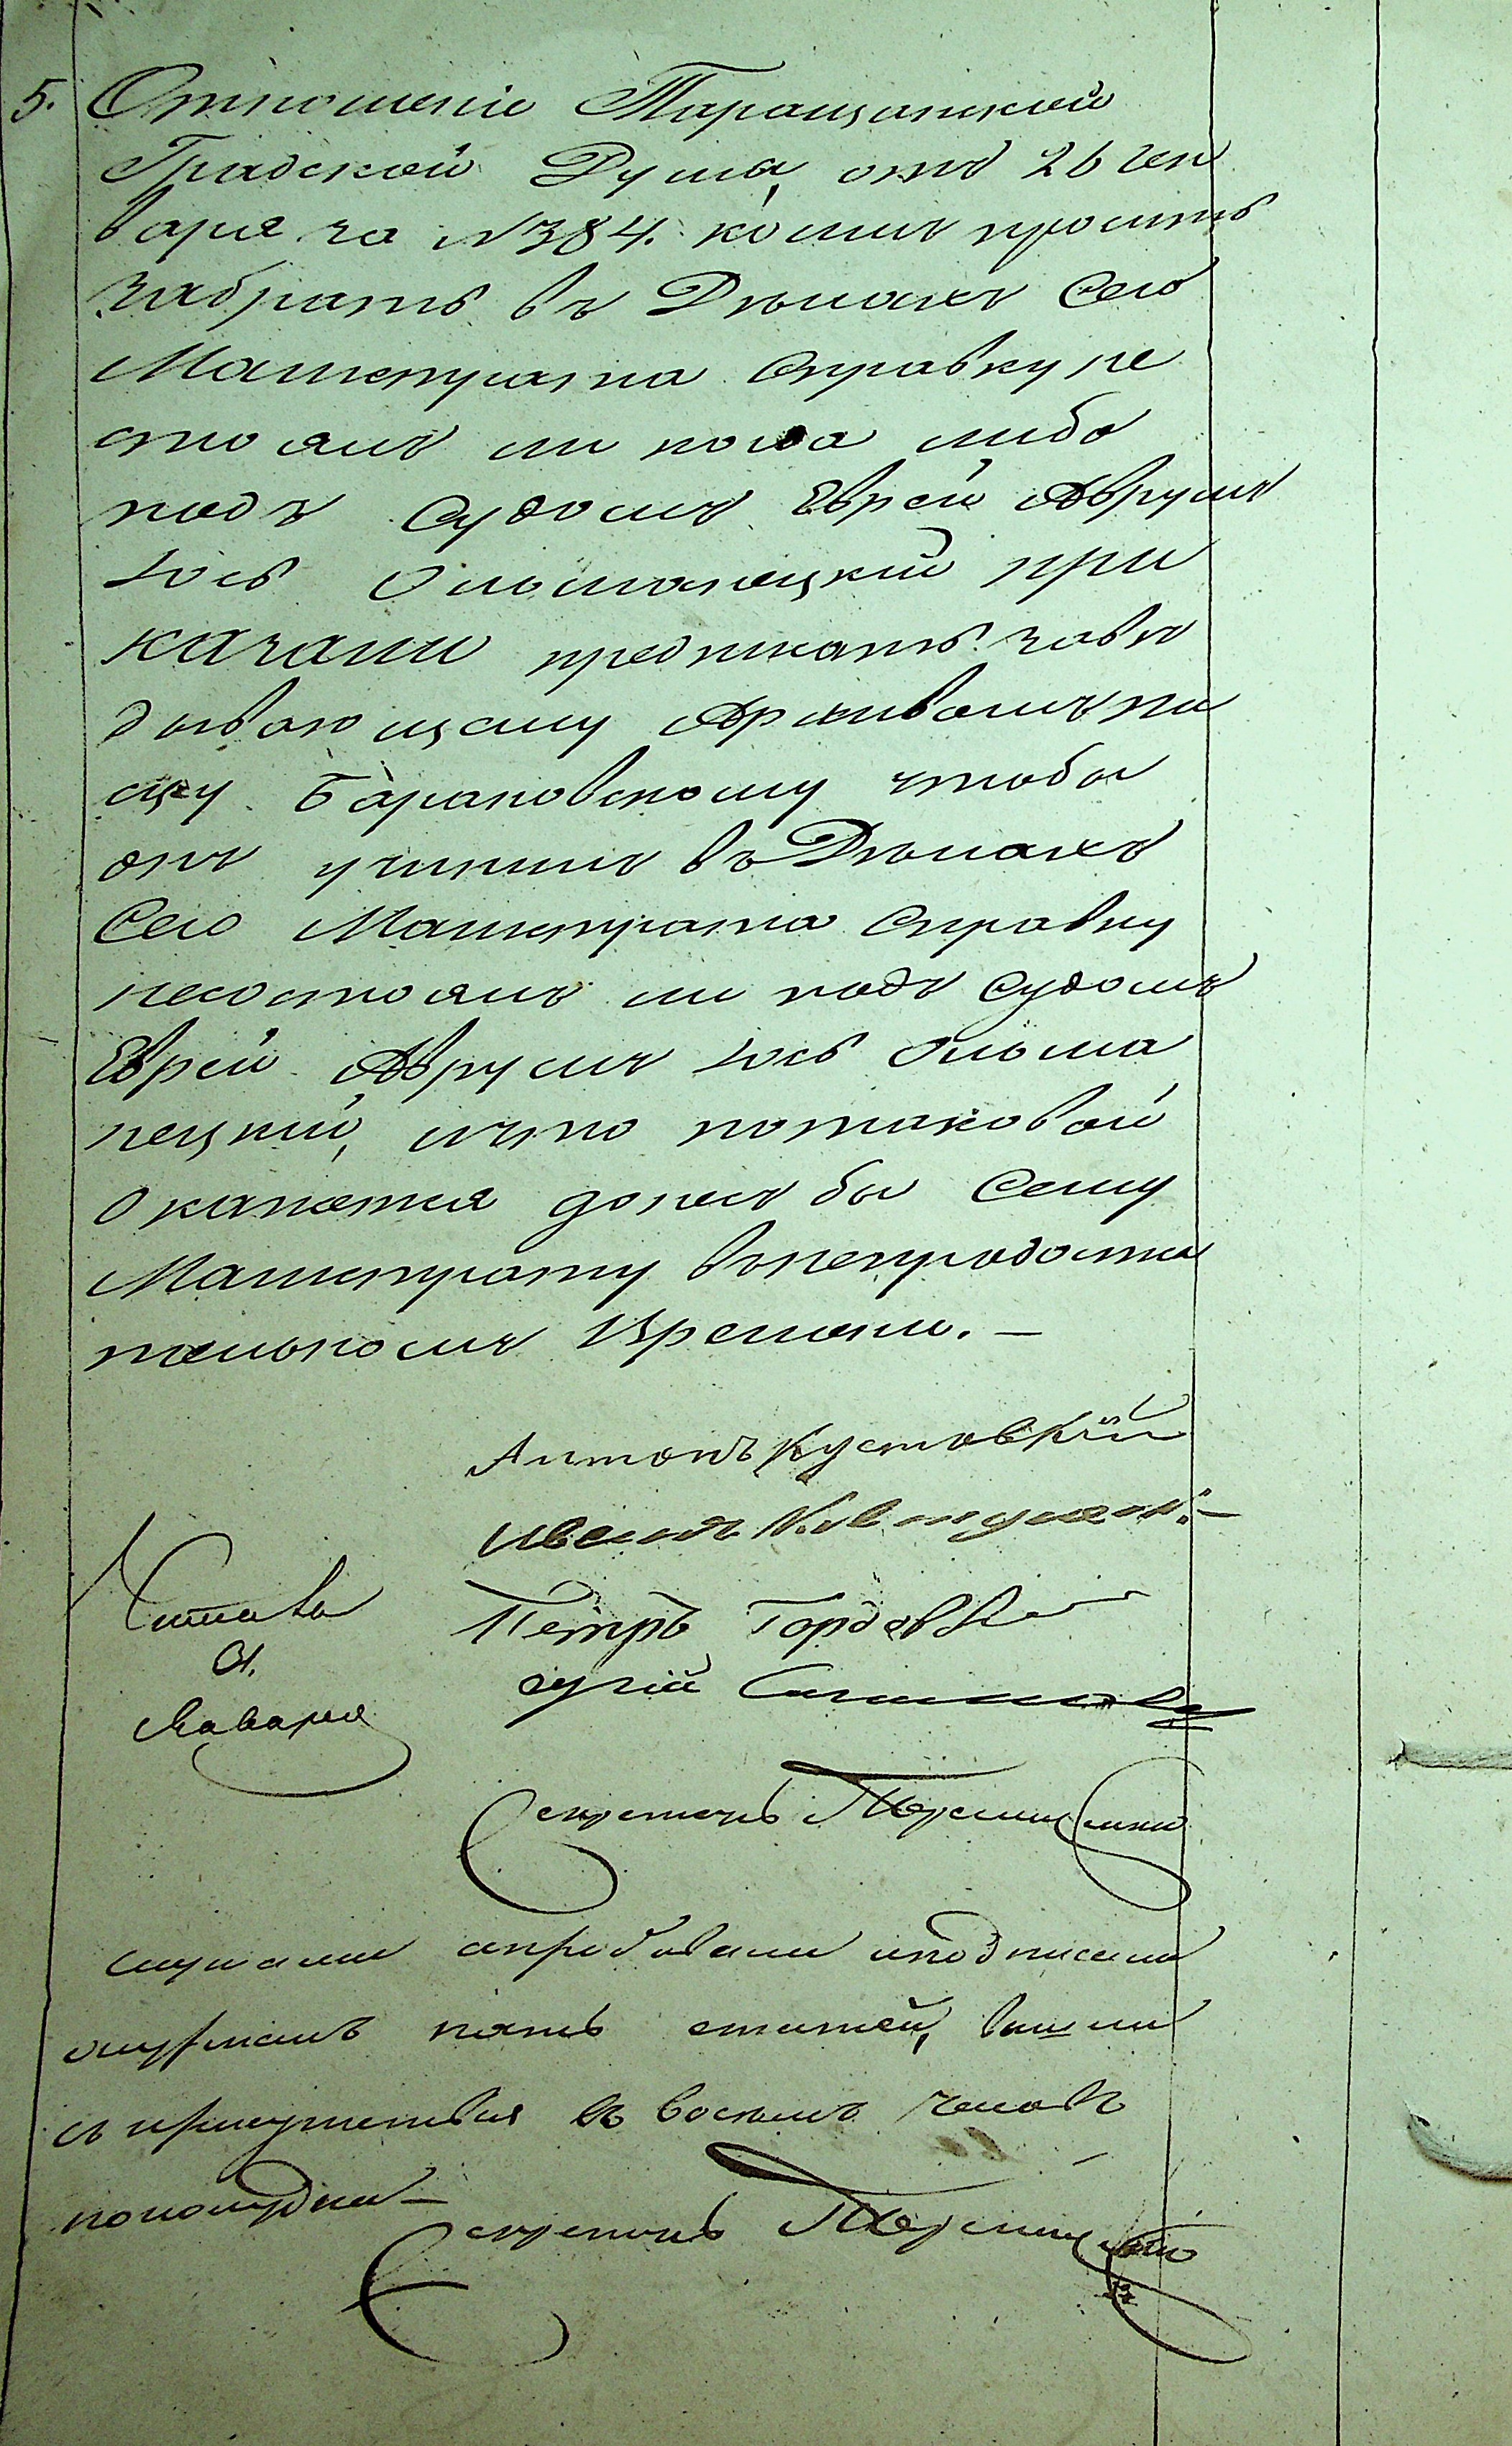 5. Отношеніе Таращанской
Градской Думы, отъ 26 Ген
варя за №384. коимъ проситъ
забрать въ Дѣлахъ Сего
Магистрата Справку не
стоялъ ли когда либо
подъ Судомъ Еврей Аврумъ
Іось Ольшанецкій при
казали предписать завѣ
дывающему Архивомъ пи
сцу Барановскому чтобы
онъ учинилъ въ Дѣлахъ
Сего Магистрата Справку
несостоялъ ли подъ Судомъ
Еврей Аврумъ Іось Ольша
нецкій, ичто потаковой
окажется донесъ бы Сему
Магистрату внепродолжи
тельномъ Времени. —
Антонъ Кустовскій
Иванъ
Петръ Гордовскій
Секретарь
слушали апробовали иподписали
пять статей, вышли
съ присутствія въ восемь часовъ
пополудни —
Секретарь